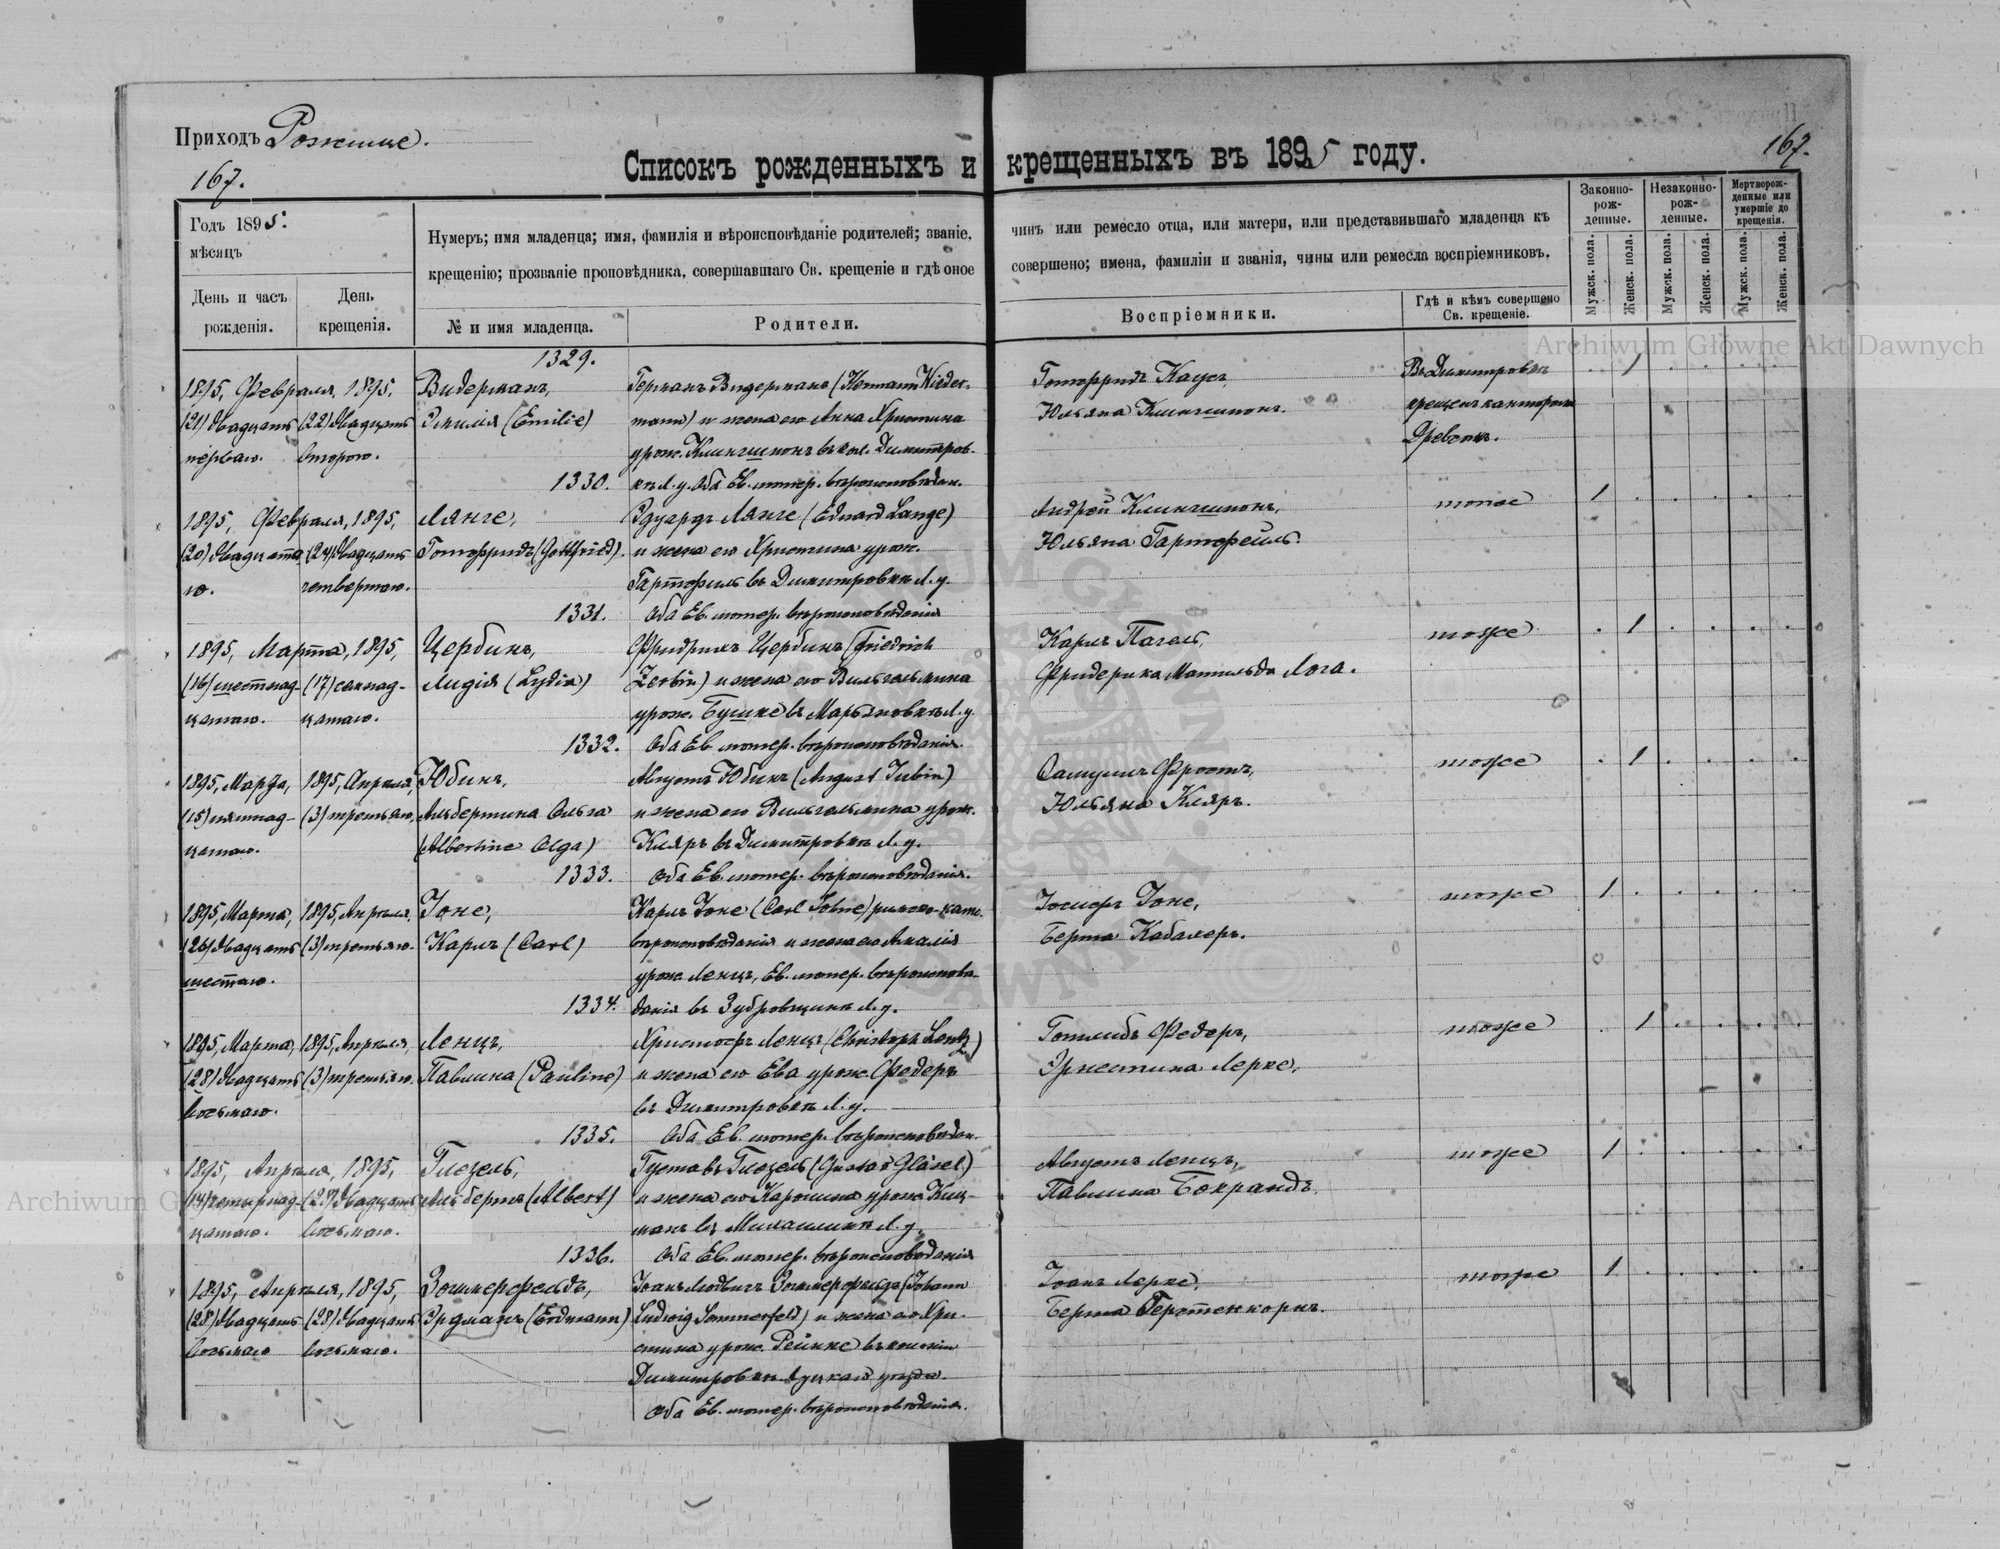 Приходъ Рожище.
167.
167.
Списокъ рожденныхъ и крещенныхъ въ 1895 году.
Годъ 1895.
мѣсяцъ
День и часъ рожденія.
День крещенія.
Нумеръ; имя младенца; имя, фамилія и вѣроисповѣданіе родителей; званіе, чинъ или ремесло отца, или матери, или представившаго младенца къ
крещенію; прозваніе проповѣдника, совершавшаго Св. крещеніе и гдѣ оное совершено; имена, фамиліи и званія, чины или ремесла воспріемниковъ.
№ и имя младенца.
Родители.
Воспріемники.
Гдѣ и кѣмъ совершено Св. крещеніе.
Законно-рож-денные.
Незаконно-рож-денные.
Мертворож-денные или умершіе до крещенія.
Мужск. пола.
Женск. пола.
Мужск. пола.
Женск. пола.
Мужск. пола.
Женск. пола.
1329.
1895, Февраля, 1895,
(21) двадцать (22) двадцать
перваго. втораго.
Видерманъ,
Эмилія (Emilie)
Германъ Видерманъ (Hermann Wieder-
mann) и жена его Анна Христина
урож. Клингшпонъ въ кол. Димитров-
кѣ Л. у. Оба Ев. лютер. вѣроисповѣдан.
Готфридъ Каусъ,
Юльяна Клингшпонъ.
Въ Димитровкѣ
крещенъ канторомъ
Древсъ.
1
1330.
1895, Февраля, 1895,
(20) двадцата- (24) двадцать
го. четвертаго.
Лянге,
Готфридъ (Gottfried).
Эдуардъ Лянге (Eduard Lange)
и жена его Христина урож.
Гартфиль въ Димитровкѣ Л. у.
Оба Ев. лютер. вѣроисповѣданія
Андрей Клингшпонъ,
Юльяна Гартфейль.
тоже
1
1331.
1895, Марта, 1895,
(16) шестнад- (17) семнад-
цатаго. цатаго.
Цербинъ,
Лидія (Lydia)
Фридрихъ Цербинъ (Friedrich
Zerbin) и жена его Вильгельмина
урож. Бушке въ Марьяновкѣ Л. у.
Оба Ев. лютер. вѣроисповѣданія.
Карлъ Пагель,
Фридерика Матильда Лога.
тоже
1
1332.
1895, Марта, 1895, Апрѣля,
(15) пятнад- (3) третьяго.
цатаго.
Юбинъ,
Альбертина Ольга
(Albertine Olga)
Августъ Юбинъ (August Jubin)
и жена его Вильгельмина урож.
Кляръ въ Димитровкѣ Л. у.
Оба Ев. лютер. вѣроисповѣданія.
Самуилъ Фростъ,
Юльяна Кляръ.
тоже
1
1333.
1895, Марта, 1895, Апрѣля,
(26) двадцать (3) третьяго.
шестаго.
Іоне,
Карлъ (Carl)
Карлъ Іоне (Carl Johne) римско-като.
вѣроисповѣданія и жена его Амалія
урож. Ленцъ, Ев. лютер. вѣроисповѣ-
данія въ Зубровщинѣ Л. у.
Іосифъ Іоне,
Берта Кабалеръ.
тоже
1
1334.
1895, Марта, 1895, Апрѣля,
(28) двадцать (3) третьяго.
восьмаго.
Ленцъ,
Павлина (Pauline)
Христофъ Ленцъ (Christoph Lentz)
и жена его Ева урож. Федеръ
въ Димитровкѣ Л. у.
Оба Ев. лютер. вѣроисповѣдан.
Готлибъ Федеръ,
Эрнестина Лерке,
тоже
1
1335.
1895, Апрѣля, 1895,
(14) четырнад- (28) двадцать
цатаго. восьмаго.
Глезель,
Альбертъ (Albert)
Густавъ Глезель (Gustav Gläsel)
и жена его Каролина урож. Киц-
манъ въ Михаилинѣ Л. у.
Оба Ев. лютер. вѣроисповѣданія
Августъ Ленцъ,
Павлина Бокрандъ.
тоже
1
1336.
1895, Апрѣля, 1895,
(28) двадцать (28) двадцать
восьмаго восьмаго.
Зоммерфельдъ,
Эрдманъ (Erdmann)
Іоанъ Людвигъ Зоммерфельдъ (Johann
Ludwig Sommerfeld) и жена его Хри-
стина урож. Рейнке въ колоніи
Димитровкѣ Луцкаго уѣзда
Оба Ев. лютер. вѣроисповѣданія.
Іоанъ Лерке,
Берта Герстенкорнъ.
тоже
1
Archiwum Główne Akt Dawnych